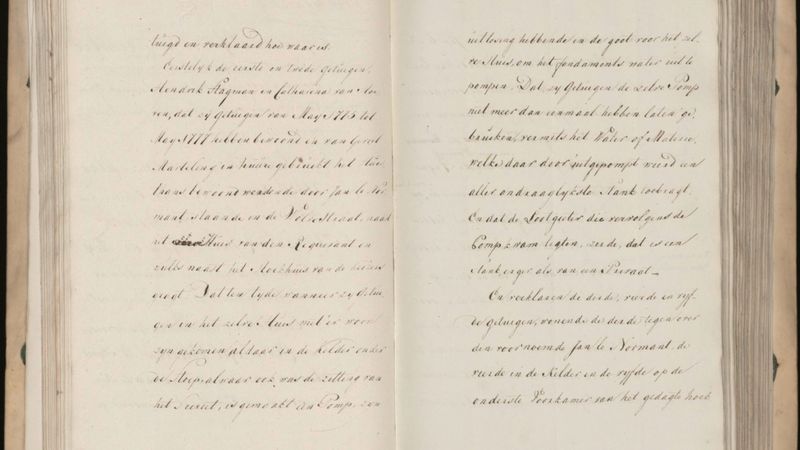 tuigd en verklaard hoe waar is.
Eerstelijk de eerste en twede getuigen,
Hendrik Hagman en Catharina van
ren, dat zy getuigen van May 1775 tot
May 1777 hebben bewoont en van Gerrit
Marteling in huure gebruikt het thans
bewoont wordende door Jan le Nor
mant staande in de Volestraat, naast
het Huis van den Requirant en
zulks naast het Hoekhuis van de
gragt. Dat ten tyde wanneer zy getui
gen in het zelve Huis met 'er woon
zyn gekomen aldaar in de Kelder onder
de Stoep, alwaar ook was de zitting van
het Secreet, is gemaakt een Pomp, zyn
uitlosing hebbende in de goot voor het zel
ve Huis, om het fondaments water uit te
pompen. Dat zy Getuigen de zelve Pomp
niet meer dan eenmaal hebben laten ge,
bruiken, vermits het Water of Materie,
welke daar door uitgepompt wierd een
aller ondraaglykste Stank toebragt.
En dat de Lootgieter die vervolgens de
Pomp kwam ligten, zeide, dat is een
stank erger als van een Privaat.
En verklaren de derde, vierde en vyf-
de getuigen, wonende de derde tegen over
den voornoemde Jan le Normant, de
vierde in de Kelder en de vyfde op de
onderste Voorkamer van het gedagte hoek